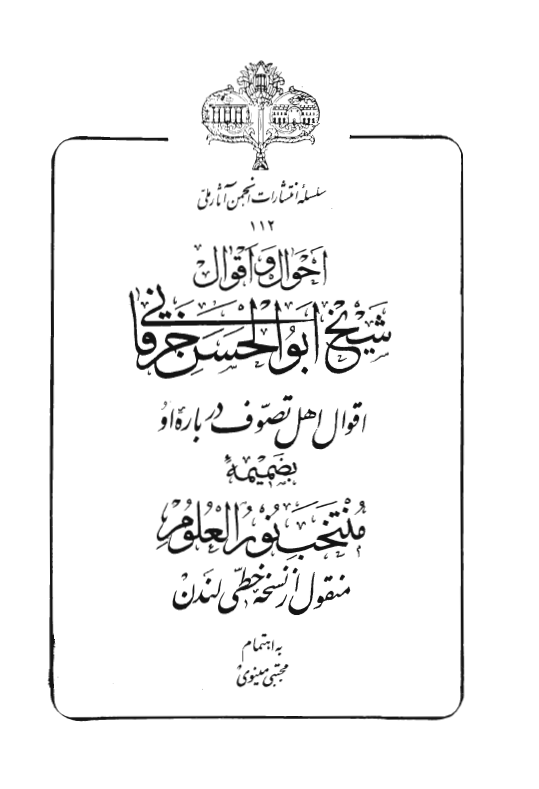 سلسلهٔ انتشارات انجمن آثار ملی
۱۱۲
احوال و اقوال
شیخ ابوالحسن خرقانی
اقوال اهل تصوّف دربارهٔ او
بضمیمهٔ
مُنتخب نُورُ العُلُوم
منقول از نسخهٔ خطّی لندن
به اهتمام
مجتبی مینوی